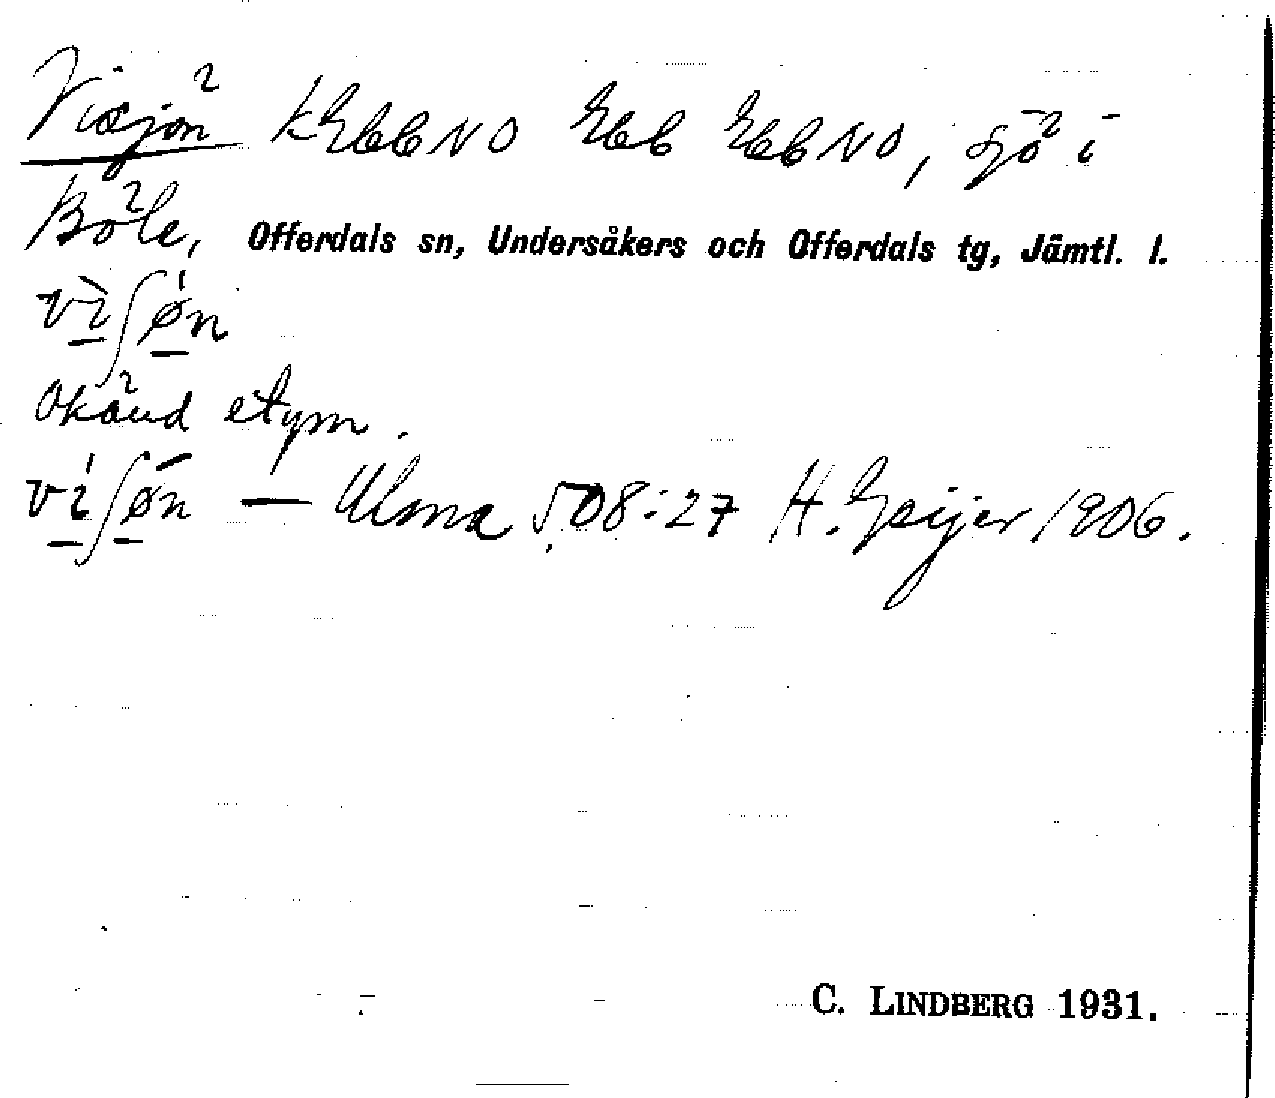 Visjön KEkb NO Ekb Ekb NO, sjö i
Böle, Offerdals sn, Undersåkers och Offerdals tg, Jämtl. l.
vìʃǿn
Okänd etym.
víʃøn — Ulma 508:27 H. Geijer 1906.
C. LINDBERG 1931.